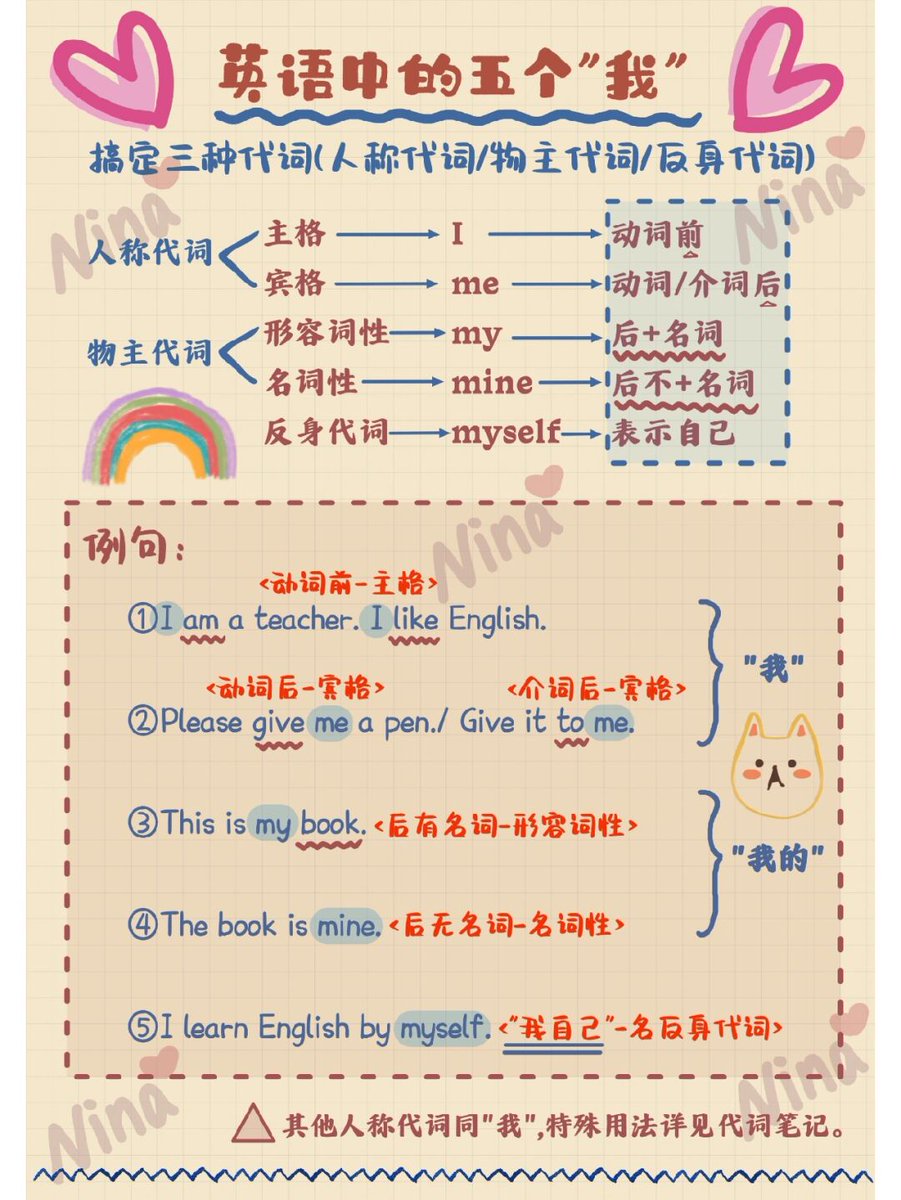 英语中的五个"我"
搞定三种代词(人称代词/物主代词/反身代词)
人称代词
主格 I 动词前
宾格 me 动词/介词后
物主代词
形容词性 my 后+名词
名词性 mine 后不+名词
反身代词 myself 表示自己
例句:
<动词前-主格>
①I am a teacher. I like English.
"我"
<动词后-宾格> <介词后-宾格>
②Please give me a pen./ Give it to me.
③This is my book. <后有名词-形容词性>
"我的"
④The book is mine. <后无名词-名词性>
⑤I learn English by myself. <"我自己"-名反身代词>
其他人称代词同"我",特殊用法详见代词笔记。
Nina
Nina
Nina
Nina
Nina